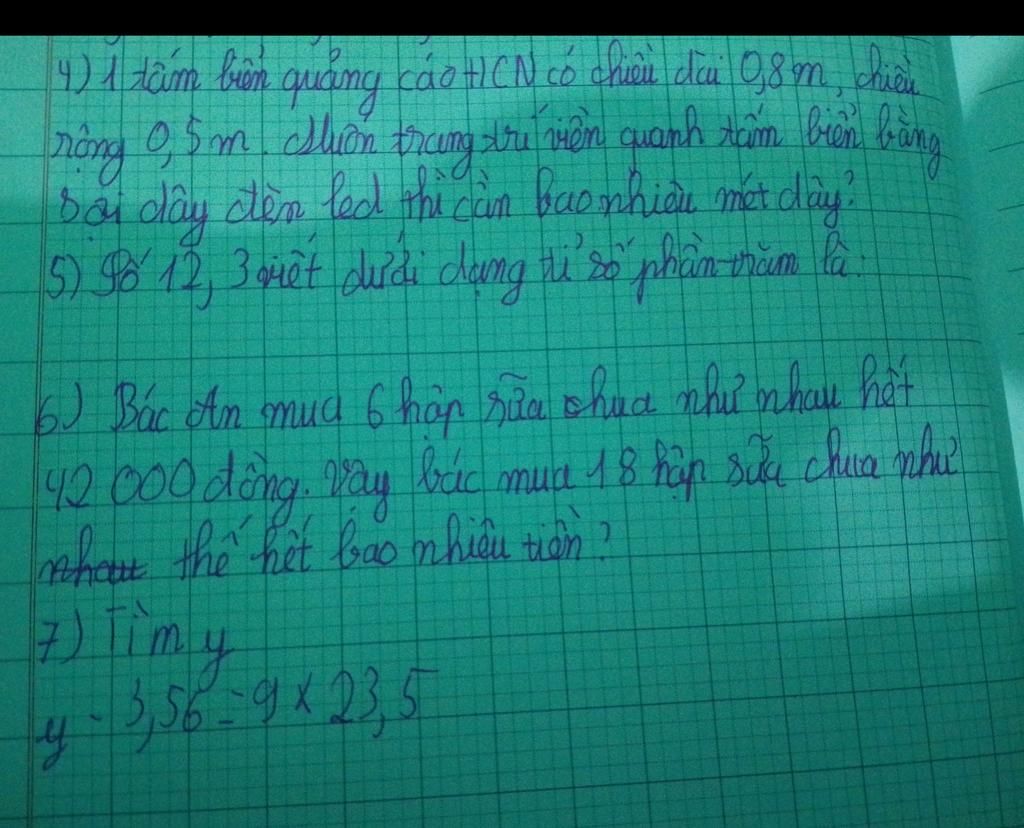 4) 1 tấm biển quảng cáo HCN có chiều dài 0,8 m, chiều
rộng 0,5 m. Muốn trang trí viền quanh tấm biển bằng
sợi dây đèn led thì cần bao nhiêu mét dây?
5) Số 12,3 viết dưới dạng tỉ số phần trăm là:
6) Bác An mua 6 hộp sữa chua như nhau hết
42 000 đồng. Vậy bác mua 18 hộp sữa chua như
nhau thế hết bao nhiêu tiền?
7) Tìm y
y - 3,56 = 9 x 23,5